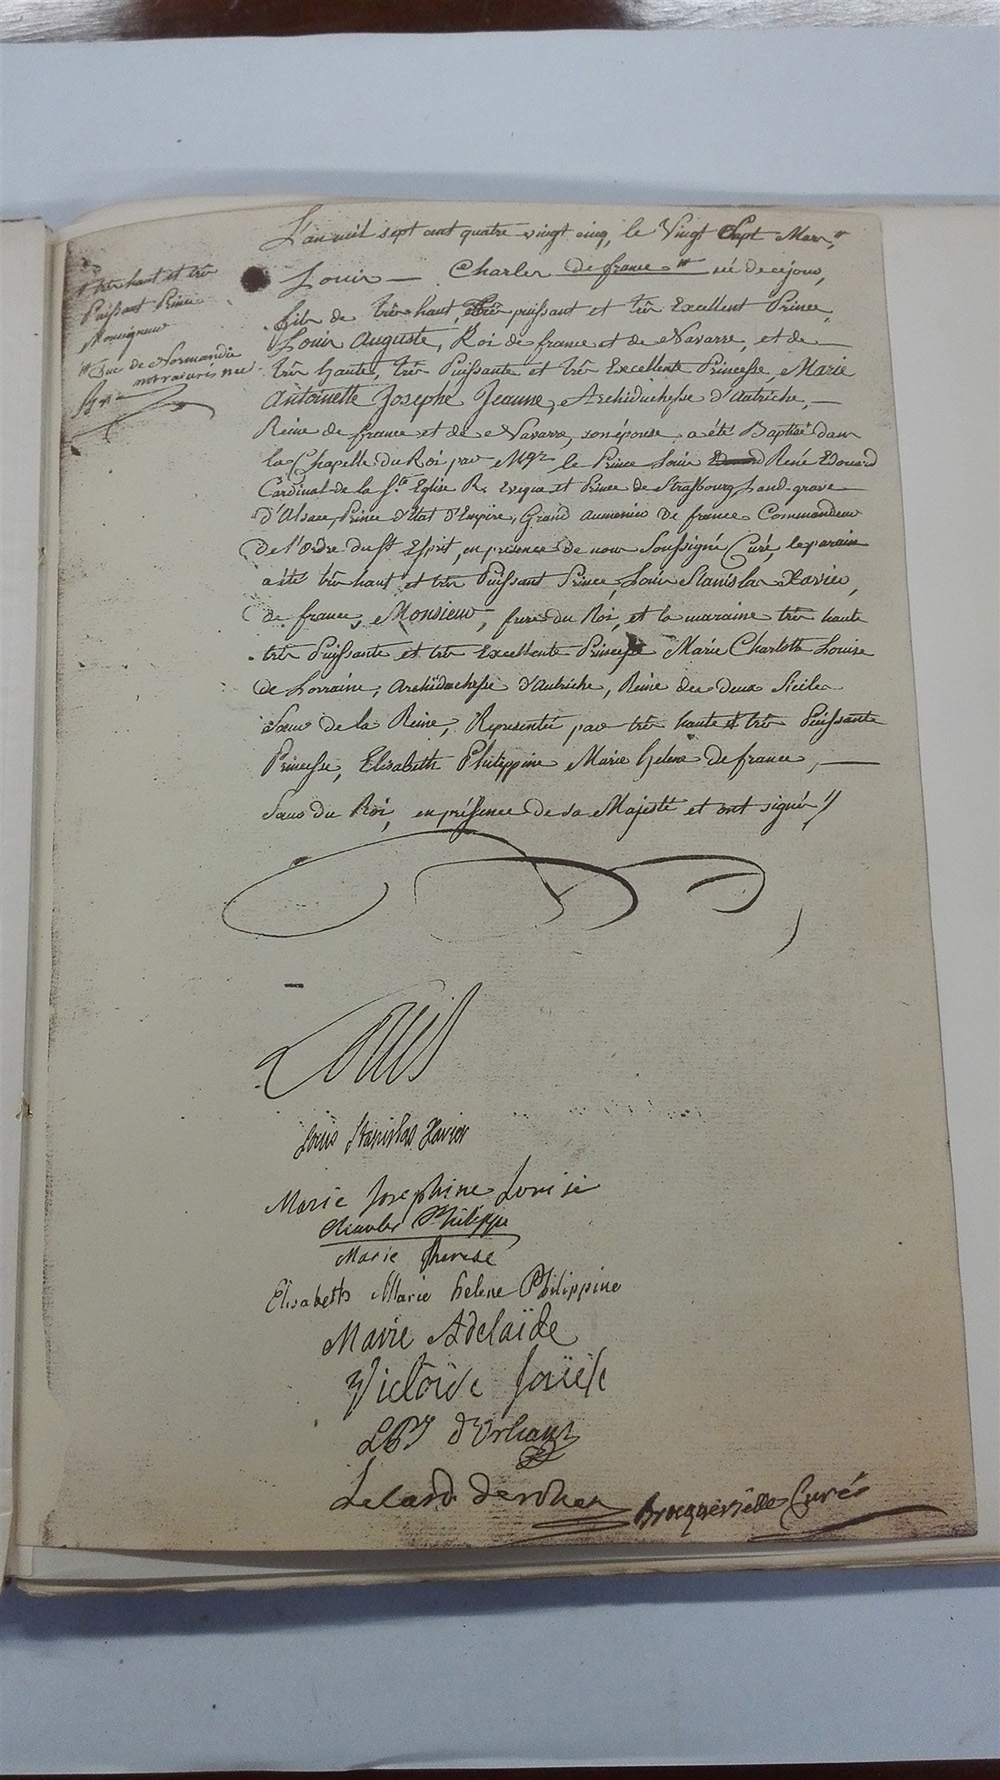 L'an mil sept cent quatre vingt cinq, le Vingt Sept Mars, "
" très haut et très
Puissant Prince
Monseigneur
" Duc de Normandie
Louis — Charles de france " né de ce jour,
fils de très haut, très puissant et très Excellent Prince,
Louis Auguste, Roi de france et de Navarre, et de —
très haute, très Puissante et très Excellente Princesse, Marie
Antoinette Josephe Jeanne, Archiduchesse d'Autriche, —
Reine de france et de Navarre, son épouse, a été Baptisé dans
la Chapelle du Roi par Mgr le Prince Louis René Edouard
Cardinal de la Ste Eglise R. Eveque et Prince de Strasbourg, Land-grave
d'Alsace, Prince d'Etat d'Empire, Grand Aumonier de france Commandeur
De l'Ordre du St Esprit, en présence de nous Soussigné Curé, le parain
a été très haut et très Puissant Prince, Louis Stanislas Xavier,
de france, Monsieur, frere du Roi, et la maraine très haute
très Puissante et très Excellente Princesse Marie Charlotte Louise
de Lorraine, Archiduchesse d'Autriche, Reine des deux Siciles
Sœur de la Reine, Représentée par très haute et très Puissante
Princesse, Elisabeth Philippine Marie helene de france, —
Sœur du Roi, en présence de sa Majesté et ont signés //
Louis
Louis Stanislas Xavier
Marie Josephine Louise
Charles Philippe
Marie Therese
Elisabeth Marie helene Philippine
Marie Adelaïde
Victoire Louise
LPJ d'Orleans
Le Card. de rohan
Brocqueville Curé